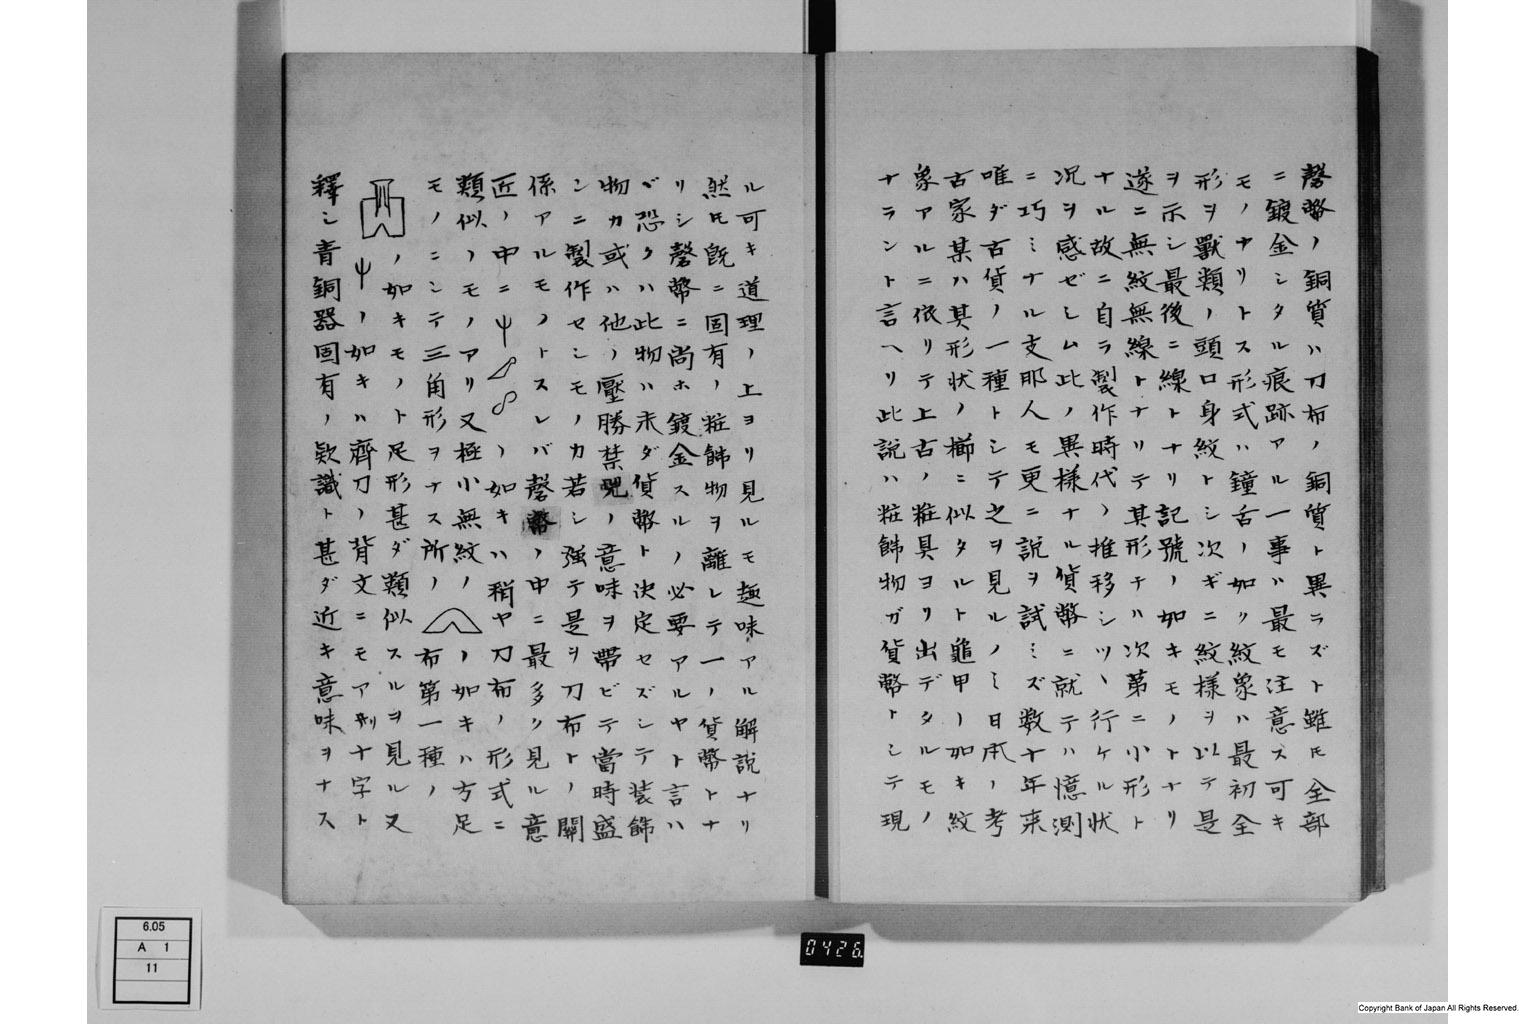 磬幣ノ銅質ハ刀布ノ銅質ト異ラズト雖モ全部
ニ鍍金シタル痕跡アル一事ハ最モ注意ス可キ
モノナリトス形式ハ鐘舌ノ如ク紋象ハ最初全
形ヲ獸類ノ頭口身紋トシ次ギニ紋樣ヲ以テ是
ヲ示シ最後ニ線トナリ記號ノ如キモノトナリ
遂ニ無紋無線トナリテ其形チハ次第ニ小形ト
ナル故ニ自ラ製作時代ノ推移シツヽ行ケル状
況ヲ感ゼシム此ノ異様ナル貨幣ニ就テハ憶測
ニ巧ミナル支那人モ更ニ説ヲ試ミズ数十年来
唯ダ古貨ノ一種トシテ之ヲ見ルノミ日本ノ考
古家某ハ其形状ノ櫛ニ似タルト龜甲ノ如キ紋
象アルニ依リテ上古ノ粧具ヨリ出デタルモノ
ナラント言ヘリ此説ハ粧飾物ガ貨幣トシテ現
ル可キ道理ノ上ヨリ見ルモ趣味アル解説ナリ
然モ既ニ固有ノ粧飾物ヲ離レテ一ノ貨幣トナ
リシ磬幣ニ尚ホ鍍金スルノ必要アルヤト言ハ
バ恐クハ此物ハ未ダ貨幣ト決定セズシテ装飾
物カ或ハ他ノ壓勝禁呪ノ意味ヲ帶ビテ當時盛
ンニ製作セシモノカ若シ強テ是ヲ刀布トノ關
係アルモノトスレバ磬幣ノ中ニ最多ク見ル意
匠ノ中ニノ如キハ稍ヤ刀布ノ形式ニ
類似ノモノアリ又極小無紋ノノ如キハ方足
モノニシテ三角形ヲナス所ノ布第一種ノ
ノ如キモノト足形甚ダ類似スルヲ見ル又
ノ如キハ齊刀ノ背文ニモア列十字ト
釋シ青銅器固有ノ欵識ト甚ダ近キ意味ヲナス
6.05
A 1
11
0426
Copyright Bank of Japan All Rights Reserved.